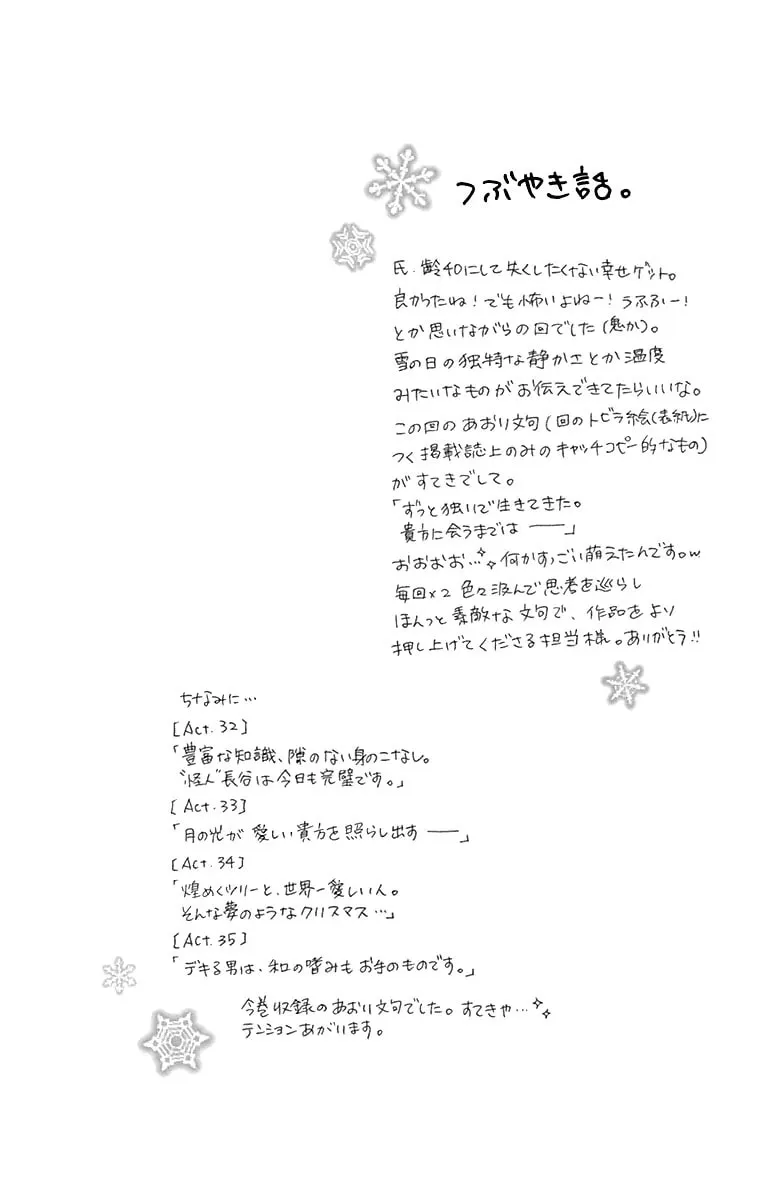 つぶやき話。
氏.齢40にして失くしたくない幸せゲット。
良かったね!でも怖いよねー!うふふー!
とか思いながらの回でした(鬼か)。
雪の日の独特な静かさとか温度
みたいなものがお伝えできてたらいいな。
この回のあおり文句(回のトビラ絵(表紙)に
つく掲載誌上のみのキャッチコピー的なもの)
がすてきでして。
「ずっと独りで生きてきた。
貴方に会うまでは――」
おおおお…何かすっごい萌えたんです。w
毎回×2 色々汲んで思考を巡らし
ほんっと素敵な文句で、作品をより
押し上げてくださる担当様。ありがとう!!
ちなみに…
[Act.32]
「豊富な知識、隙のない身のこなし。
"怪人"長谷は今日も完璧です。」
[Act.33]
「月の光が愛しい貴方を照らし出す――」
[Act.34]
「煌めくツリーと、世界一愛しい人。
そんな夢のようなクリスマス…」
[Act.35]
「デキる男は、和の嗜みもお手のものです。」
今巻収録のあおり文句でした。すてきや…
テンションあがります。